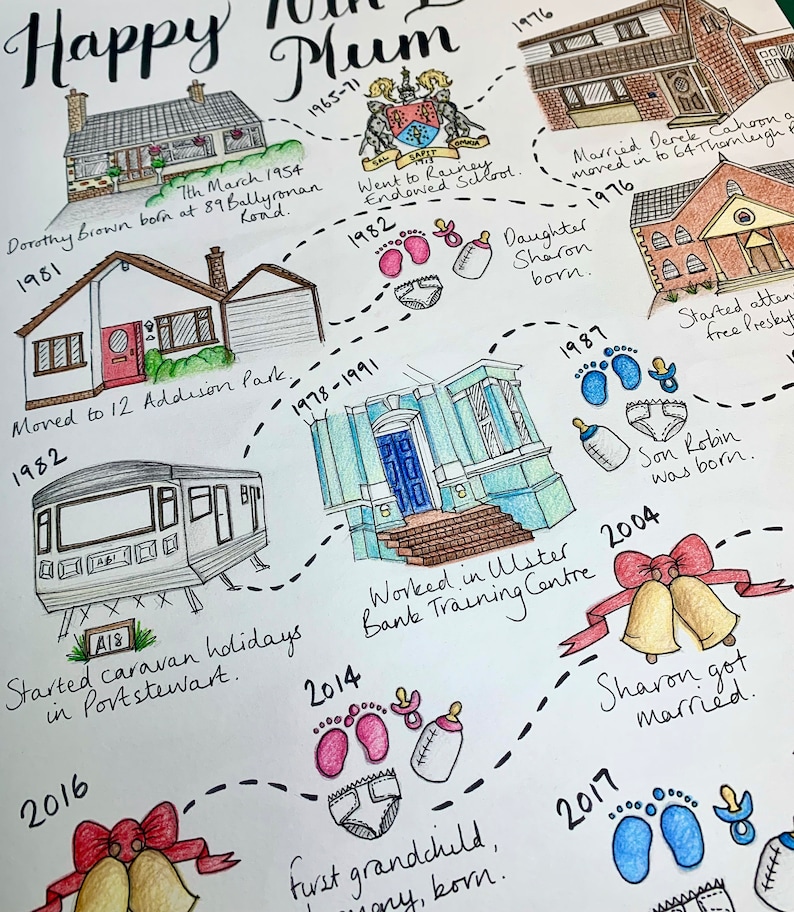 Happy 70th
Mum
7th March 1954
Dorothy Brown born at 89 Ballyronan
Road.
1965-71
SAL SAPIT OMNIA
1713
Went to Rainey
Endowed School.
1976
Married Derek Cahoon
moved in to 64 Thornleigh
1981
Moved to 12 Addison Park.
1982
Daughter
Sharon
born.
1976
Started
free
1982
A18
Started caravan holidays
in Portstewart.
1978-1991
Worked in Ulster
Bank Training Centre
1987
Son Robin
was born.
2004
Sharon got
married.
2014
First grandchild,
born.
2016
2017